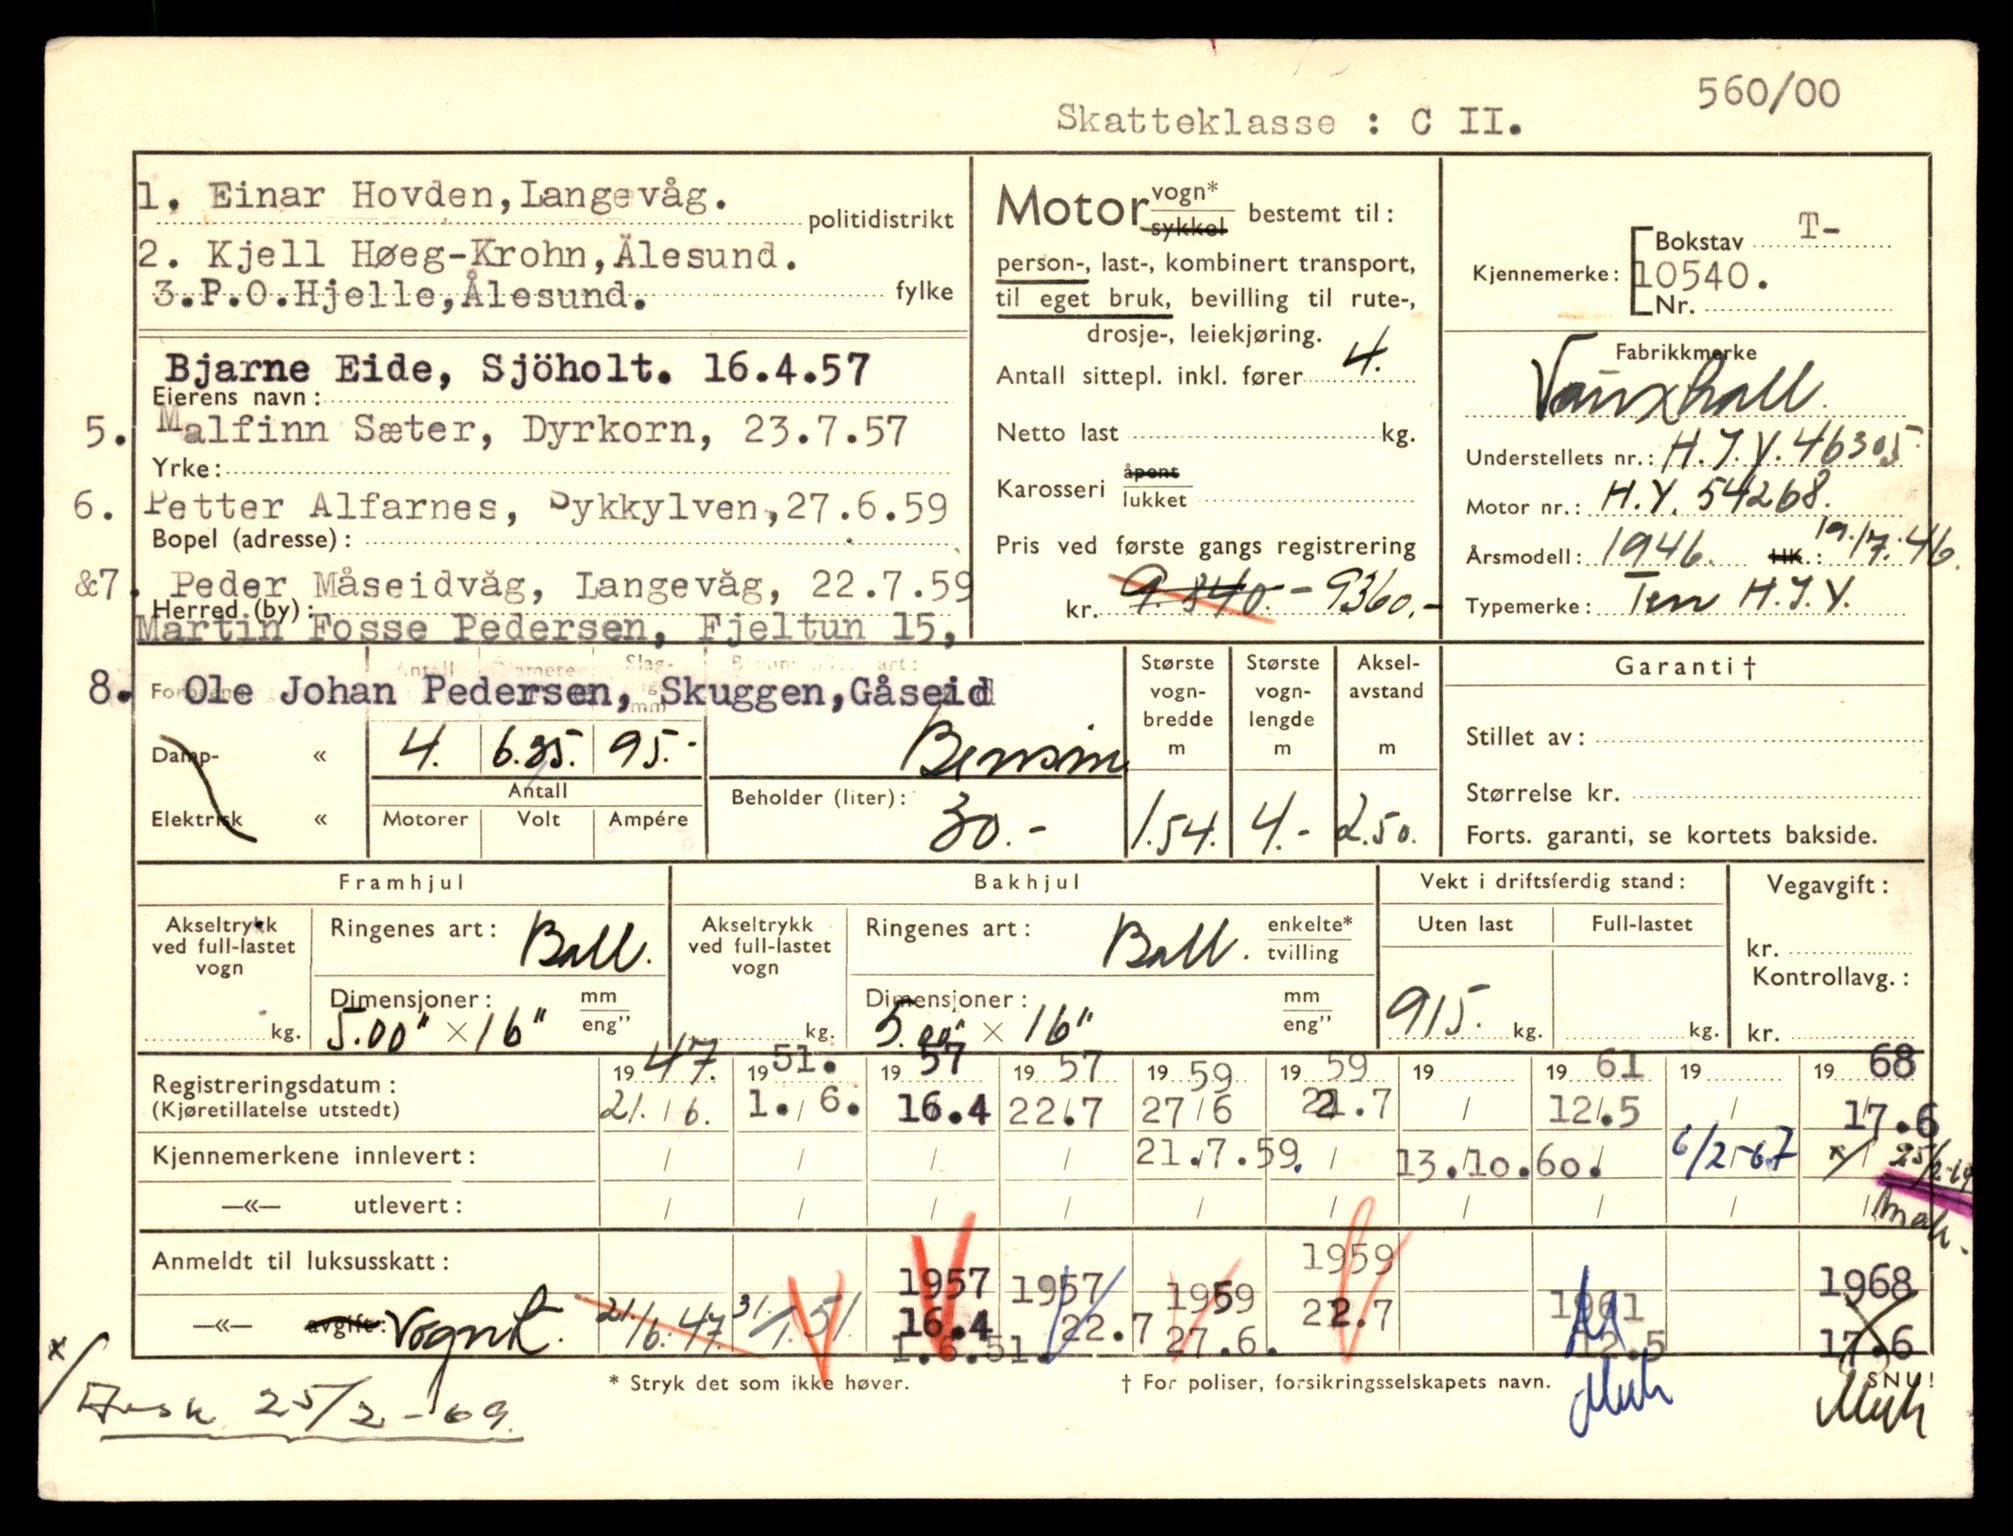 560/00
Skatteklasse : C II.
1. Einar Hovden, Langevåg.
politidistrikt
2. Kjell Høeg-Krohn, Ålesund.
3. P.O.Hjelle, Ålesund.
fylke
Bjarne Eide, Sjöholt. 16.4.57
Eierens navn :
5. Malfinn Sæter, Dyrkorn, 23.7.57
Yrke :
6. Petter Alfarnes, Sykkylven, 27.6.59
Bopel (adresse) :
&7. Peder Måseidvåg, Langevåg, 22.7.59
Herred (by) :
Martin Fosse Pedersen, Fjeltun 15,
8. Ole Johan Pedersen, Skuggen, Gåseid
Motor vogn* / sykkel bestemt til :
person-, last-, kombinert transport,
til eget bruk, bevilling til rute-,
drosje-, leiekjøring.
Antall sittepl. inkl. fører 4.
Netto last kg.
Karosseri åpent / lukket
Pris ved første gangs registrering
kr. 9.840.- 9360.-
Kjennemerke : Bokstav T-
10540.
Nr.
Fabrikkmerke
Vauxhall
Understellets nr. : H.J.Y. 46305
Motor nr. : H.Y. 54268.
Årsmodell : 1946. HK. : 19.17.46.
Typemerke : Ten H.J.Y.
Antall Slag-
mm
art :
Damp- « 4. 6.35. 95.- Bensin
Elektrisk «
Antall
Motorer Volt Ampére
Beholder (liter) : 30.-
Største vogn-bredde m 1.54.
Største vogn-lengde m 4.-
Aksel-avstand m 2.50.
Garanti †
Stillet av :
Størrelse kr.
Forts. garanti, se kortets bakside.
Framhjul
Akseltrykk ved full-lastet vogn kg.
Ringenes art : Ball.
Dimensjoner : mm / eng”
5.00" × 16"
Bakhjul
Akseltrykk ved full-lastet vogn kg.
Ringenes art : Ball. enkelte* / tvilling
Dimensjoner : mm / eng”
5.00" × 16"
Vekt i driftsferdig stand :
Uten last Full-lastet
915. kg. kg.
Vegavgift :
kr.
Kontrollavg. :
kr.
Registreringsdatum : 19 47. 19 51. 19 57 19 57 19 59 19 59 19 19 61 19 19 68
(Kjøretillatelse utstedt) 21. / 6. 1. / 6. 16.4 22.7 27/6 21.7 / 12.5 / 17.6
Kjennemerkene innlevert : / / / / 21.7.59. / 13.10.60. 6/2-67 x/ 25/2-69
—«— utlevert : / / / / / / / / / /
Anmeldt til luksusskatt : 1957 1957 1959 1959 1961 1968
—«— avgift : Vognt. 21/6.47. 31/1.51 16.4 22.7 27.6. 22.7 12.5 17.6
1.6.51.
* Stryk det som ikke høver.
† For poliser, forsikringsselskapets navn.
SNU !
x/
25/2-69.